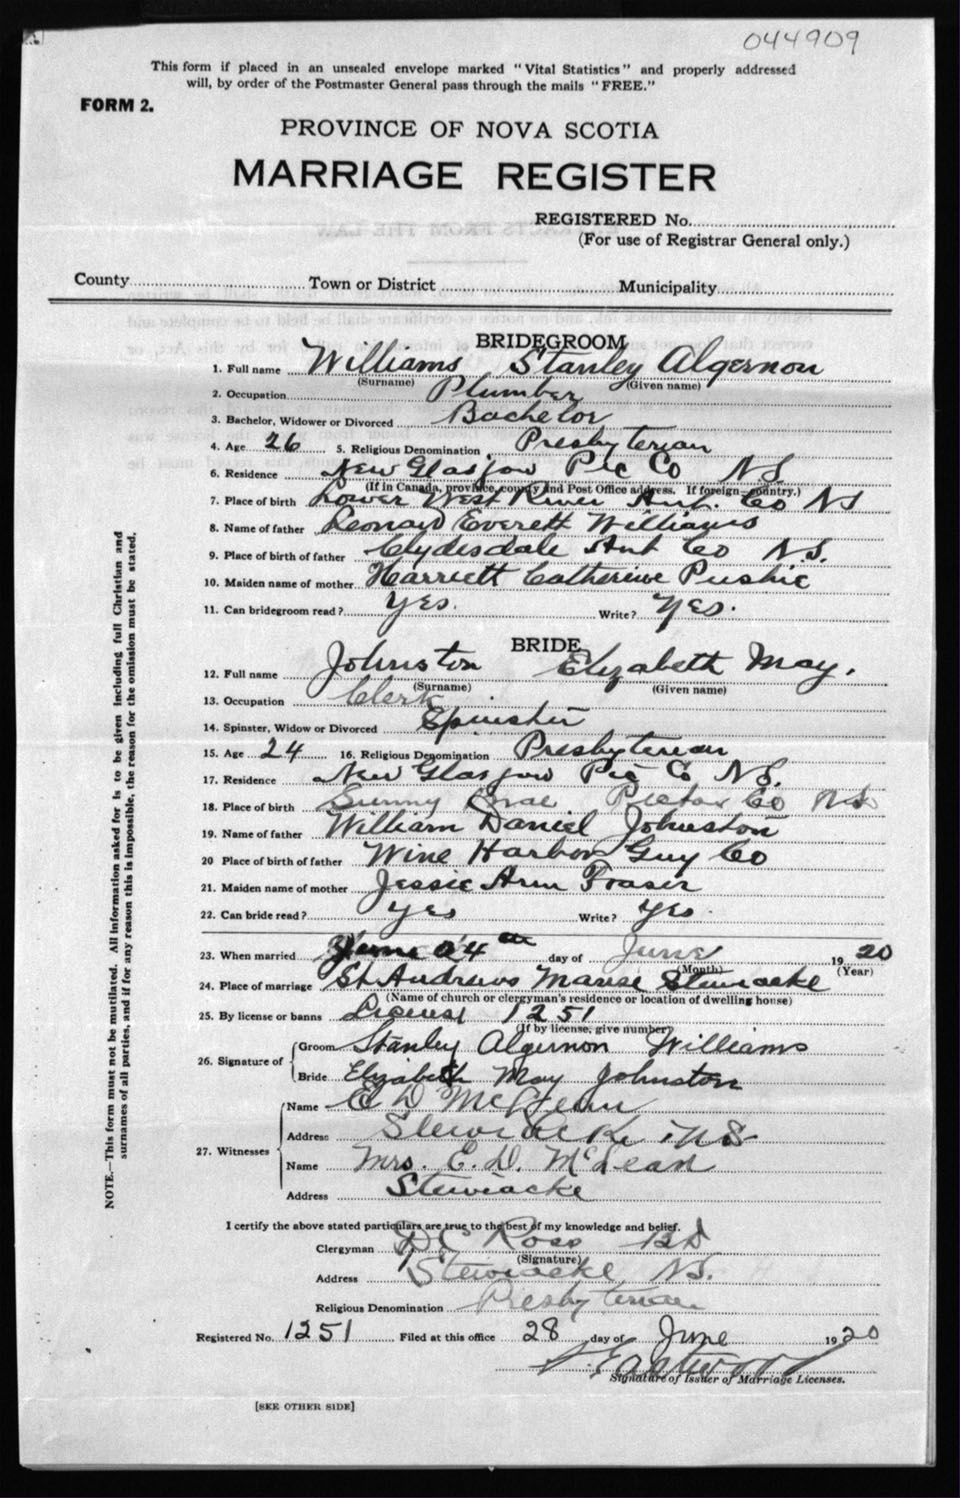 044909
This form if placed in an unsealed envelope marked "Vital Statistics" and properly addressed
will, by order of the Postmaster General pass through the mails "FREE."
FORM 2.
PROVINCE OF NOVA SCOTIA
MARRIAGE REGISTER
REGISTERED No.
(For use of Registrar General only.)
County Town or District Municipality
BRIDEGROOM
1. Full name Williams Stanley Algernon
(Surname) (Given name)
2. Occupation Plumber
3. Bachelor, Widower or Divorced Bachelor
4. Age 26 5. Religious Denomination Presbyterian
6. Residence New Glasgow Pic Co N S
(If in Canada, province, county and Post Office address. If foreign—country.)
7. Place of birth Lower West River Ant. Co N S
8. Name of father Leonard Everett Williams
9. Place of birth of father Clydesdale Ant Co N.S.
10. Maiden name of mother Harriett Catherine Pushie
11. Can bridegroom read? Yes. Write? Yes.
BRIDE
12. Full name Johnston Elizabeth May.
(Surname) (Given name)
13. Occupation Clerk
14. Spinster, Widow or Divorced Spinster
15. Age 24 16. Religious Denomination Presbyterian
17. Residence New Glasgow Pic Co N S.
18. Place of birth Sunny Brae Pictou Co N S
19. Name of father William Daniel Johnston
20 Place of birth of father Wine Harbor Guy Co
21. Maiden name of mother Jessie Ann Fraser
22. Can bride read? Yes Write? Yes.
23. When married 24th day of June 1920
(Month) (Year)
24. Place of marriage St Andrews Manse Stewiacke
(Name of church or clergyman's residence or location of dwelling house)
25. By license or banns License 1251
(If by license, give number)
26. Signature of Groom Stanley Algernon Williams
Bride Elizabeth May Johnston
27. Witnesses
Name E D McLean
Address Stewiacke N S
Name Mrs. E. D. McLean
Address Stewiacke
I certify the above stated particulars are true to the best of my knowledge and belief.
Clergyman D C Ross B D
(Signature)
Address Stewiacke N.S.
Religious Denomination Presbyterian
Registered No. 1251 Filed at this office 28 day of June 1920
Eastwood
Signature of Issuer of Marriage Licenses.
[SEE OTHER SIDE]
NOTE.—This form must not be mutilated. All information asked for is to be given including full Christian and
surnames of all parties, and if for any reason this is impossible, the reason for the omission must be stated.